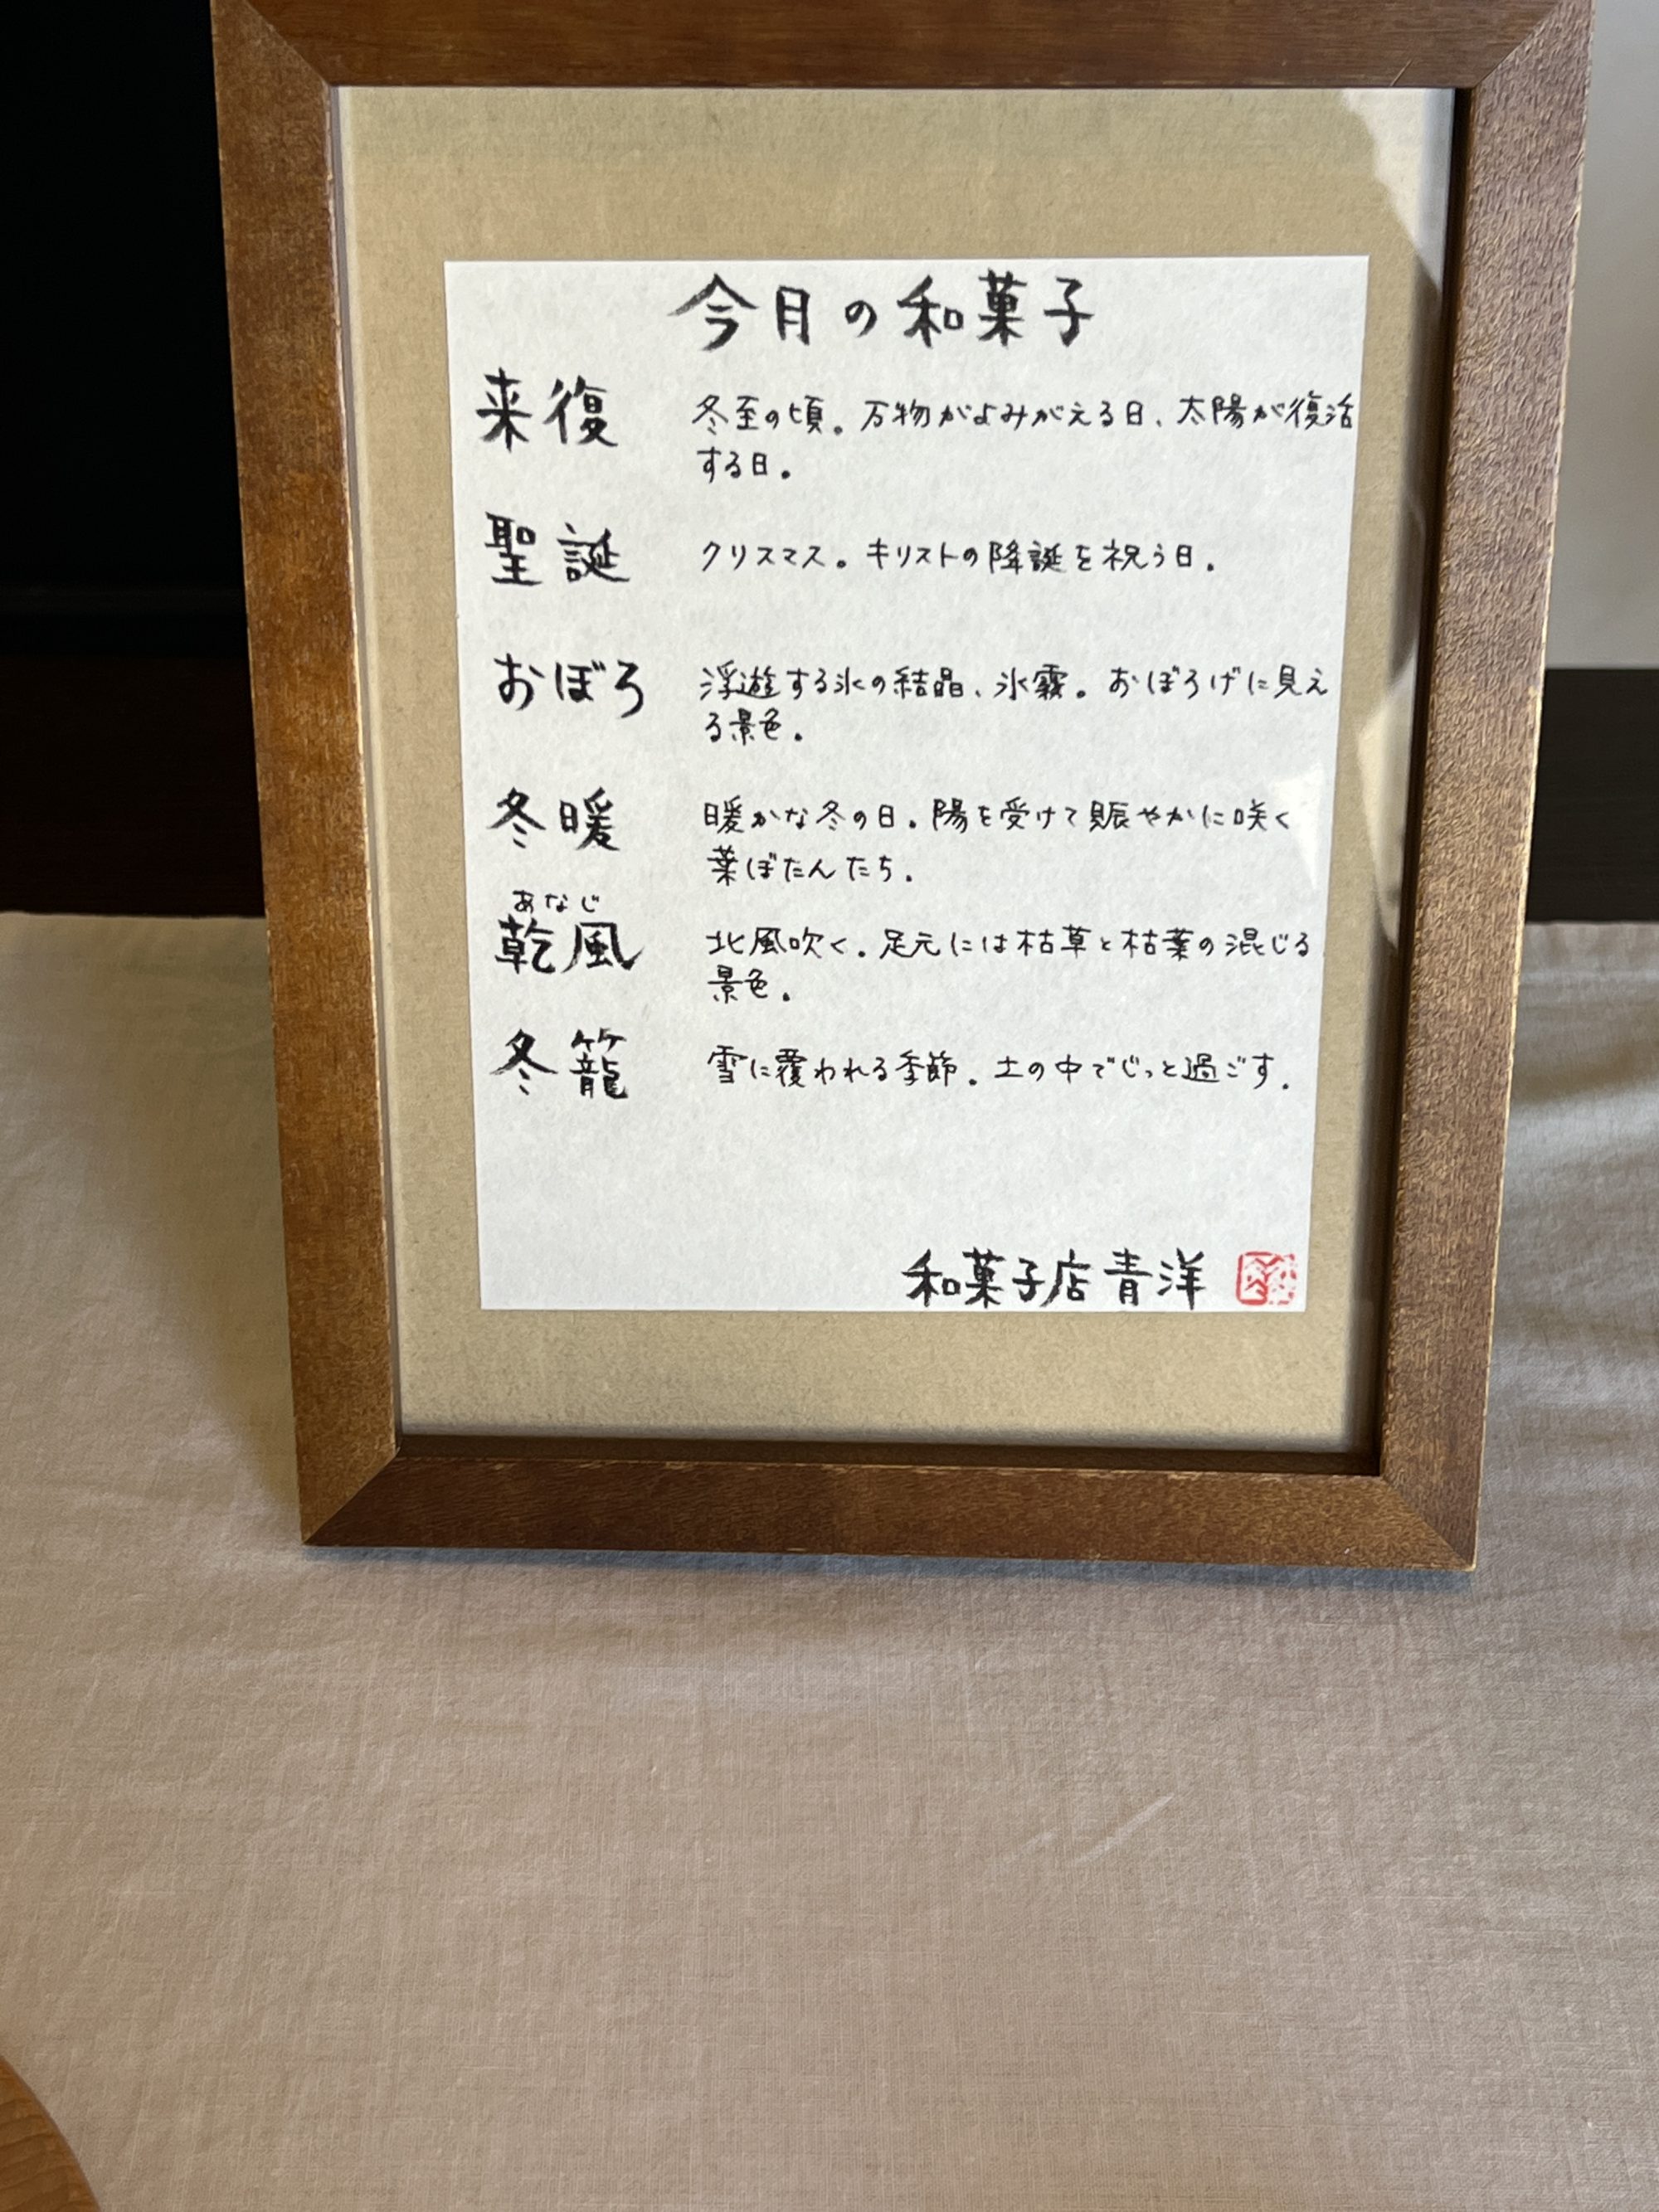 今月の和菓子
来復 冬至の頃。万物がよみがえる日、太陽が復活
する日。
聖誕 クリスマス。キリストの降誕を祝う日。
おぼろ 浮遊する氷の結晶、氷霧。おぼろげに見え
る景色。
冬暖 暖かな冬の日。陽を受けて賑やかに咲く
葉ぼたんたち。
あなじ
乾風 北風吹く。足元には枯草と枯葉の混じる
景色。
冬籠 雪に覆われる季節。土の中でじっと過ごす。
和菓子店青洋